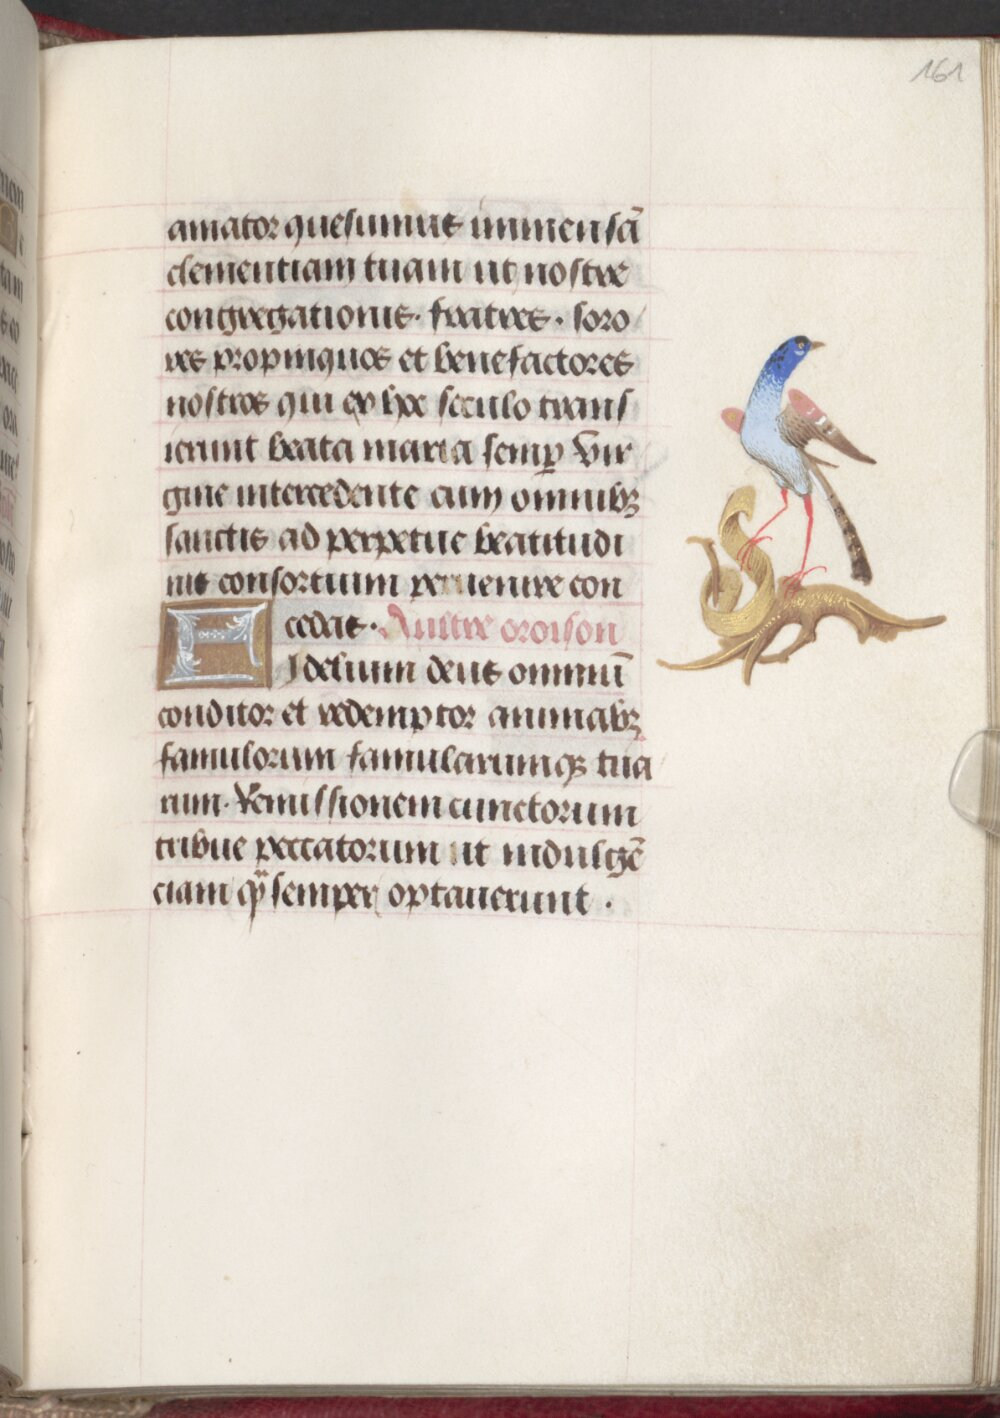 161
amator quesumus immensā
clementiam tuam ut nostre
congregationis · fratres · soro
res propinquos et benefactores
nostros qui ex hoc seculo trans
ierunt beata maria semp̱ vir
gine intercedente cum omnibꝫ
sanctis ad perpetue beatitudi
nis consortium peruenire con
cedas · Aultre oroison
Fidelium deus omniū
conditor et redemptor animabꝫ
famulorum famularumqꝫ tua
rum · Remissionem cunctorum
tribue peccatorum ut indulgē
ciam qͣ semper optauerunt ·